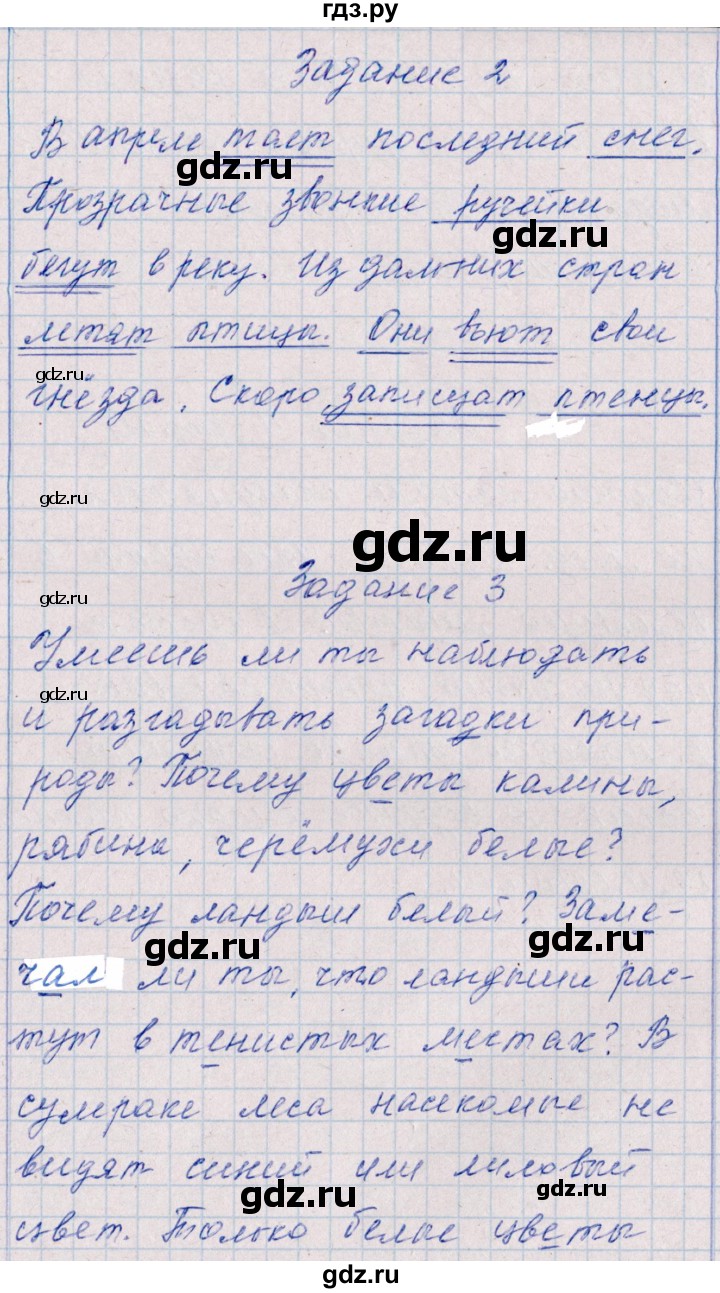 гдз.ру
Задание 2
В апреле тает последний снег.
gdz.ru
Прозрачные звонкие ручейки
gdz.ru
бегут в реку. Из дальних стран
летят птицы. Они вьют свои
gdz.ru
гнёзда. Скоро запищат птенцы.
gdz.ru
gdz.ru
Задание 3
gdz.ru
Умеешь ли ты наблюдать
gdz.ru
и разгадывать загадки при-
роды? Почему цветы калины,
рябины, черёмухи белые?
Почему ландыш белый? Заме-
gdz.ru
gdz.ru
чал ли ты, что ландыши рас-
тут в тенистых местах? В
сумраке леса насекомые не
видят синий или лиловый
gdz.ru
gdz.ru
цвет. Только белые цветы
gdz.ru